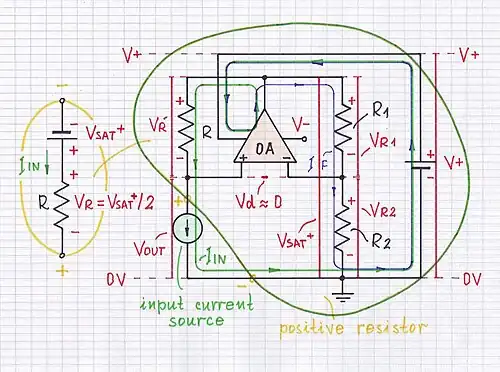 V+
V+
-
+
-
VSAT+
+
IIN
+
R
VR = VSAT+/2
-
+
+
VR
-
R
OA
V-
+
-
+
R1
-
IF
VR1
Vd ≈ 0
+
V+
-
+
VOUT
IIN
VSAT+
+
VR2
R2
-
0V
0V
-
input current
source
positive resistor